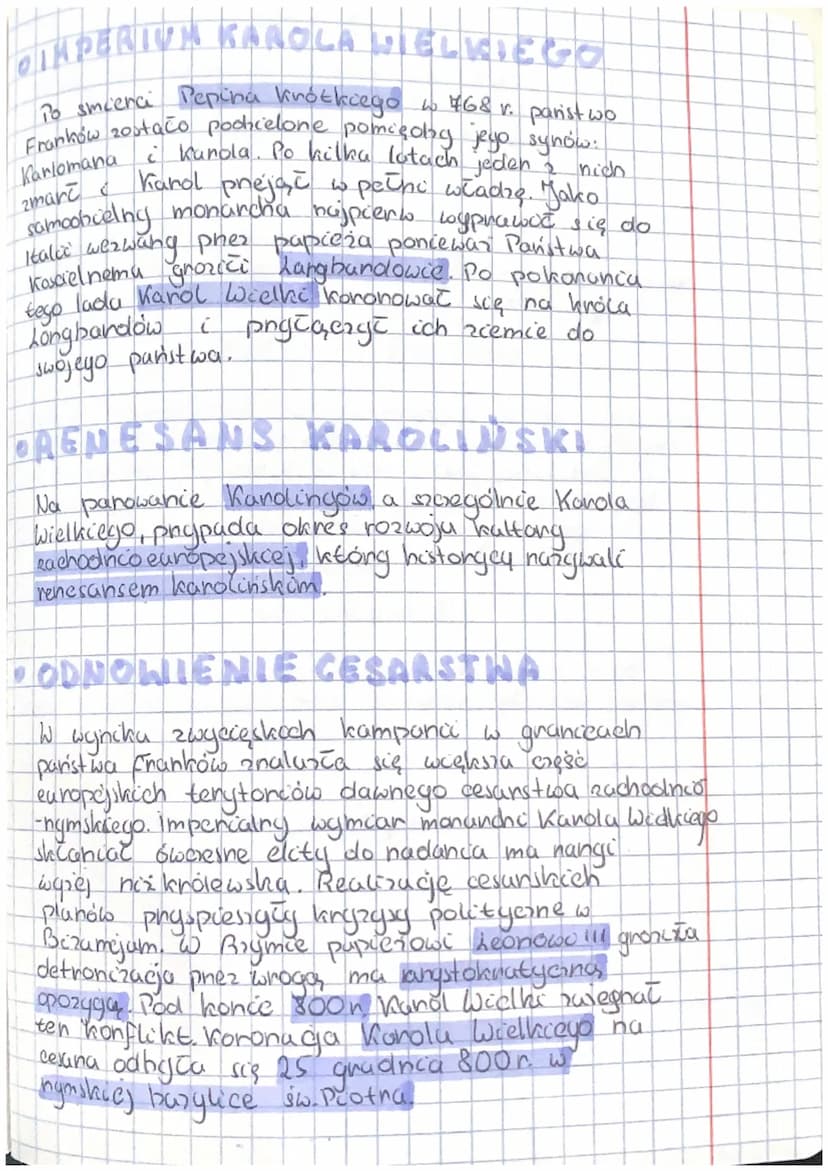 IMPERIUM KAROLA WIELKIEGO
Po śmierci Pepina Krótkiego w 768 r. państwo
Franków zostało podzielone pomiędzy jego synów:
Karlomana i Karola. Po kilku latach jeden z nich
zmarł i Karol przejął w pełni władzę. Jako
samodzielny monarcha najpierw wyprawił się do
Italii wezwany przez papieża ponieważ Państwu
Kościelnemu grozili Langbardowie. Po pokonaniu
tego ludu Karol Wielki koronował się na króla
Longbardów i przyłączył ich ziemie do
swojego państwa.
RENESANS KAROLIŃSKI
Na panowanie Karolingów, a szczególnie Karola
Wielkiego, przypada okres rozwoju kultury
zachodnioeuropejskiej, który historycy nazywali
renesansem karolińskim.
ODNOWIENIE CESARSTWA
W wyniku zwycięskich kampanii w granicach
państwa Franków znalazła się większa część
europejskich terytoriów dawnego cesarstwa zachodnio
-rzymskiego. Imperialny wymiar monarchii Karola Wielkiego
skłaniał ówczesne elity do nadania mu rangi
wyżej niż królewska. Realizację cesarskich
planów przyspieszyły kryzysy polityczne w
Bizancjum. W Rzymie papieżowi Leonowi III groziła
detronizacja przez wrogą mu arystokratyczną
opozycję. Pod koniec 800r. Karol Wielki zażegnał
ten konflikt. Koronacja Karola Wielkiego na
cesarza odbyła się 25 grudnia 800r. w
rzymskiej bazylice św. Piotra.